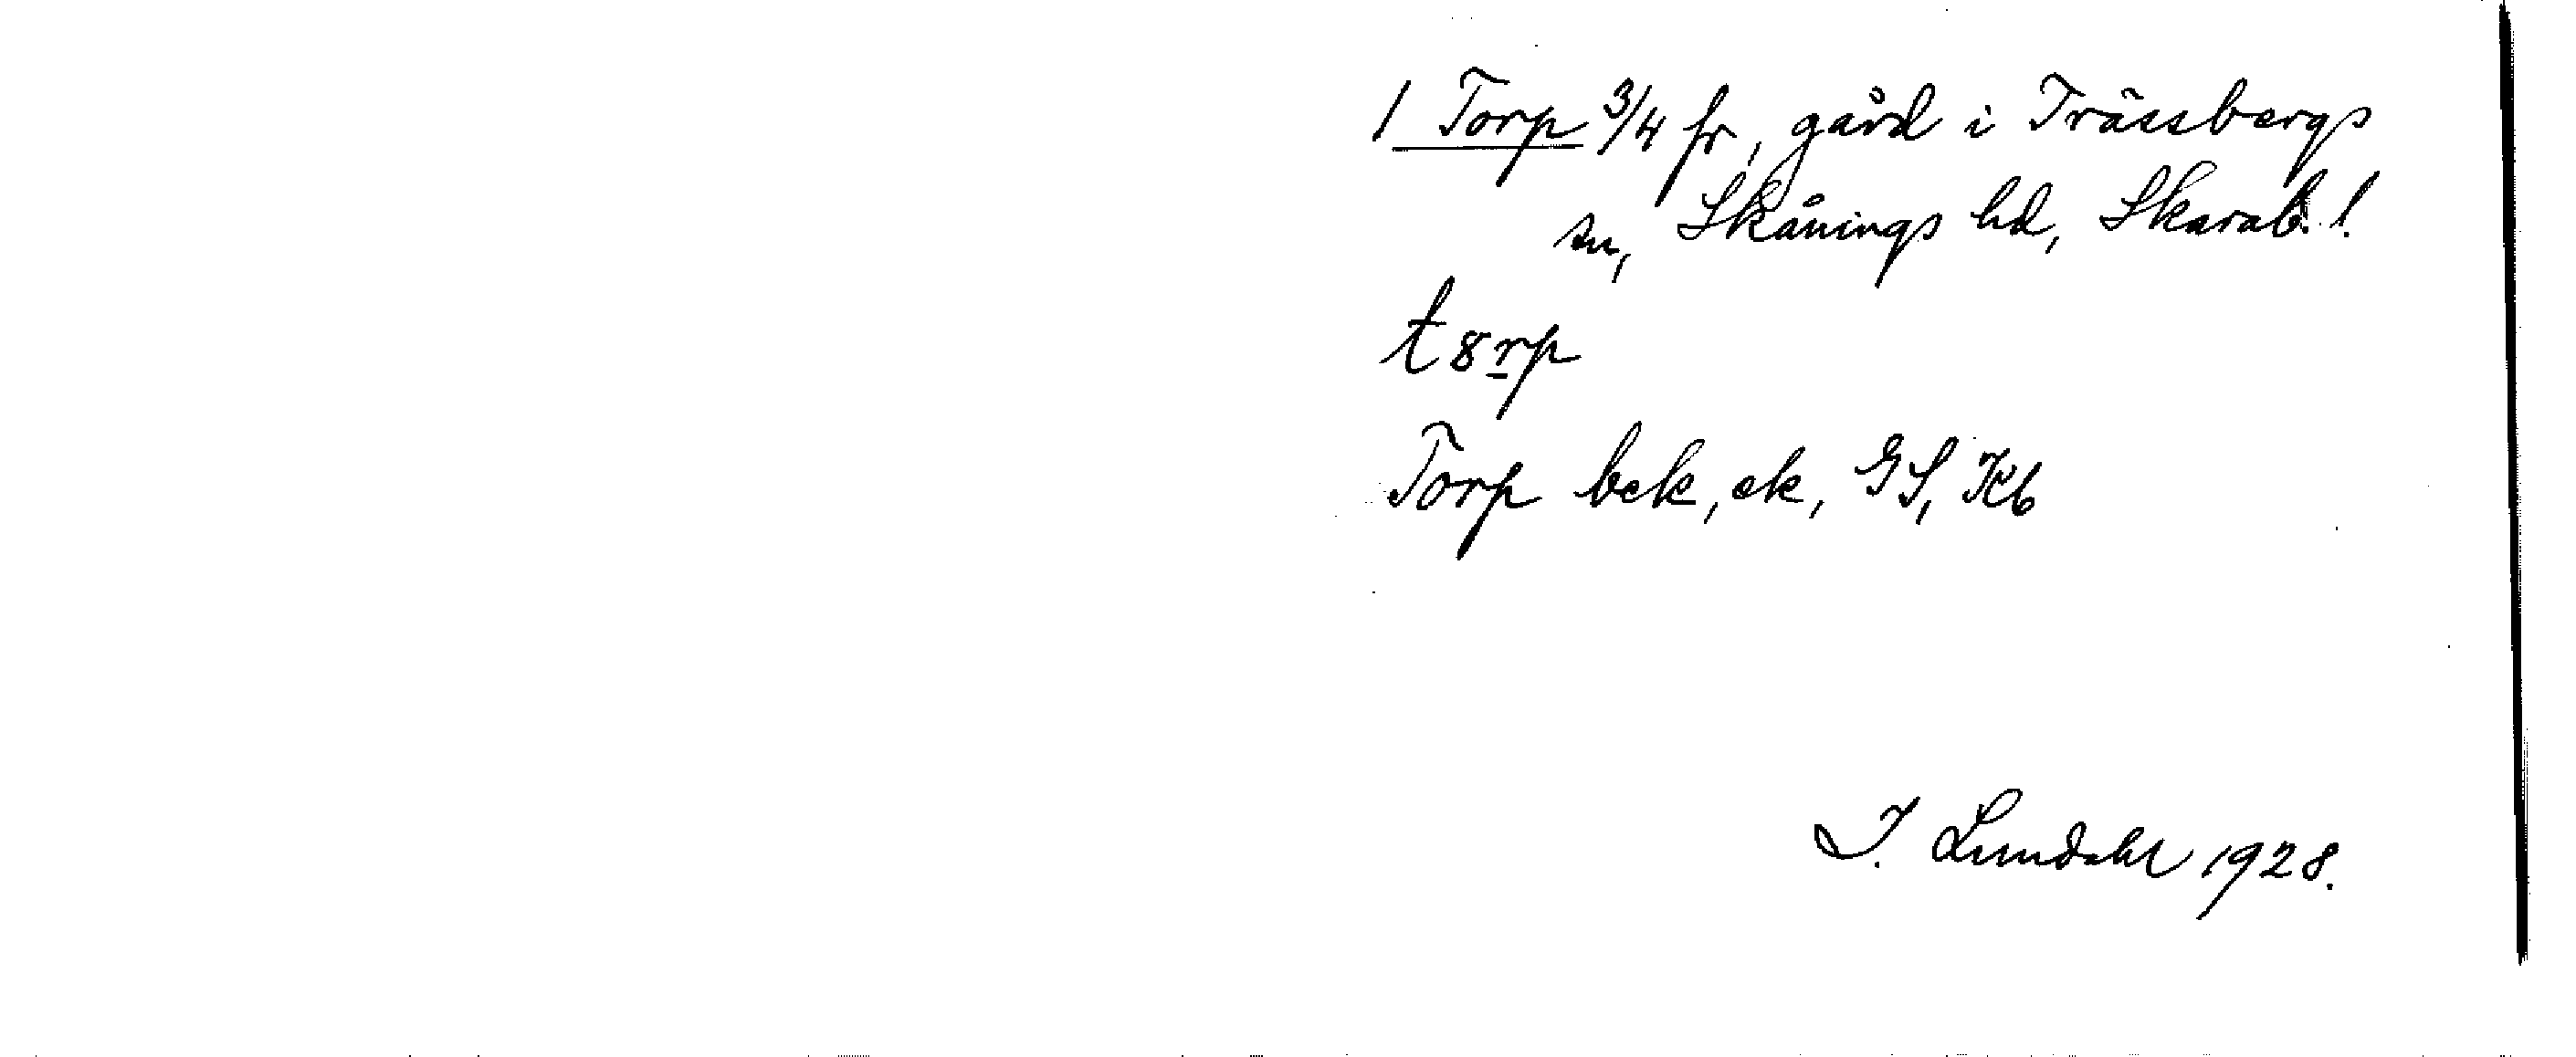 1 Torp 3/4 fr, gård i Trässbergs
sn, Skånings hd, Skarab. l.
t8rp
Torp bek, ek, GS, Kb
I. Lundahl 1928.